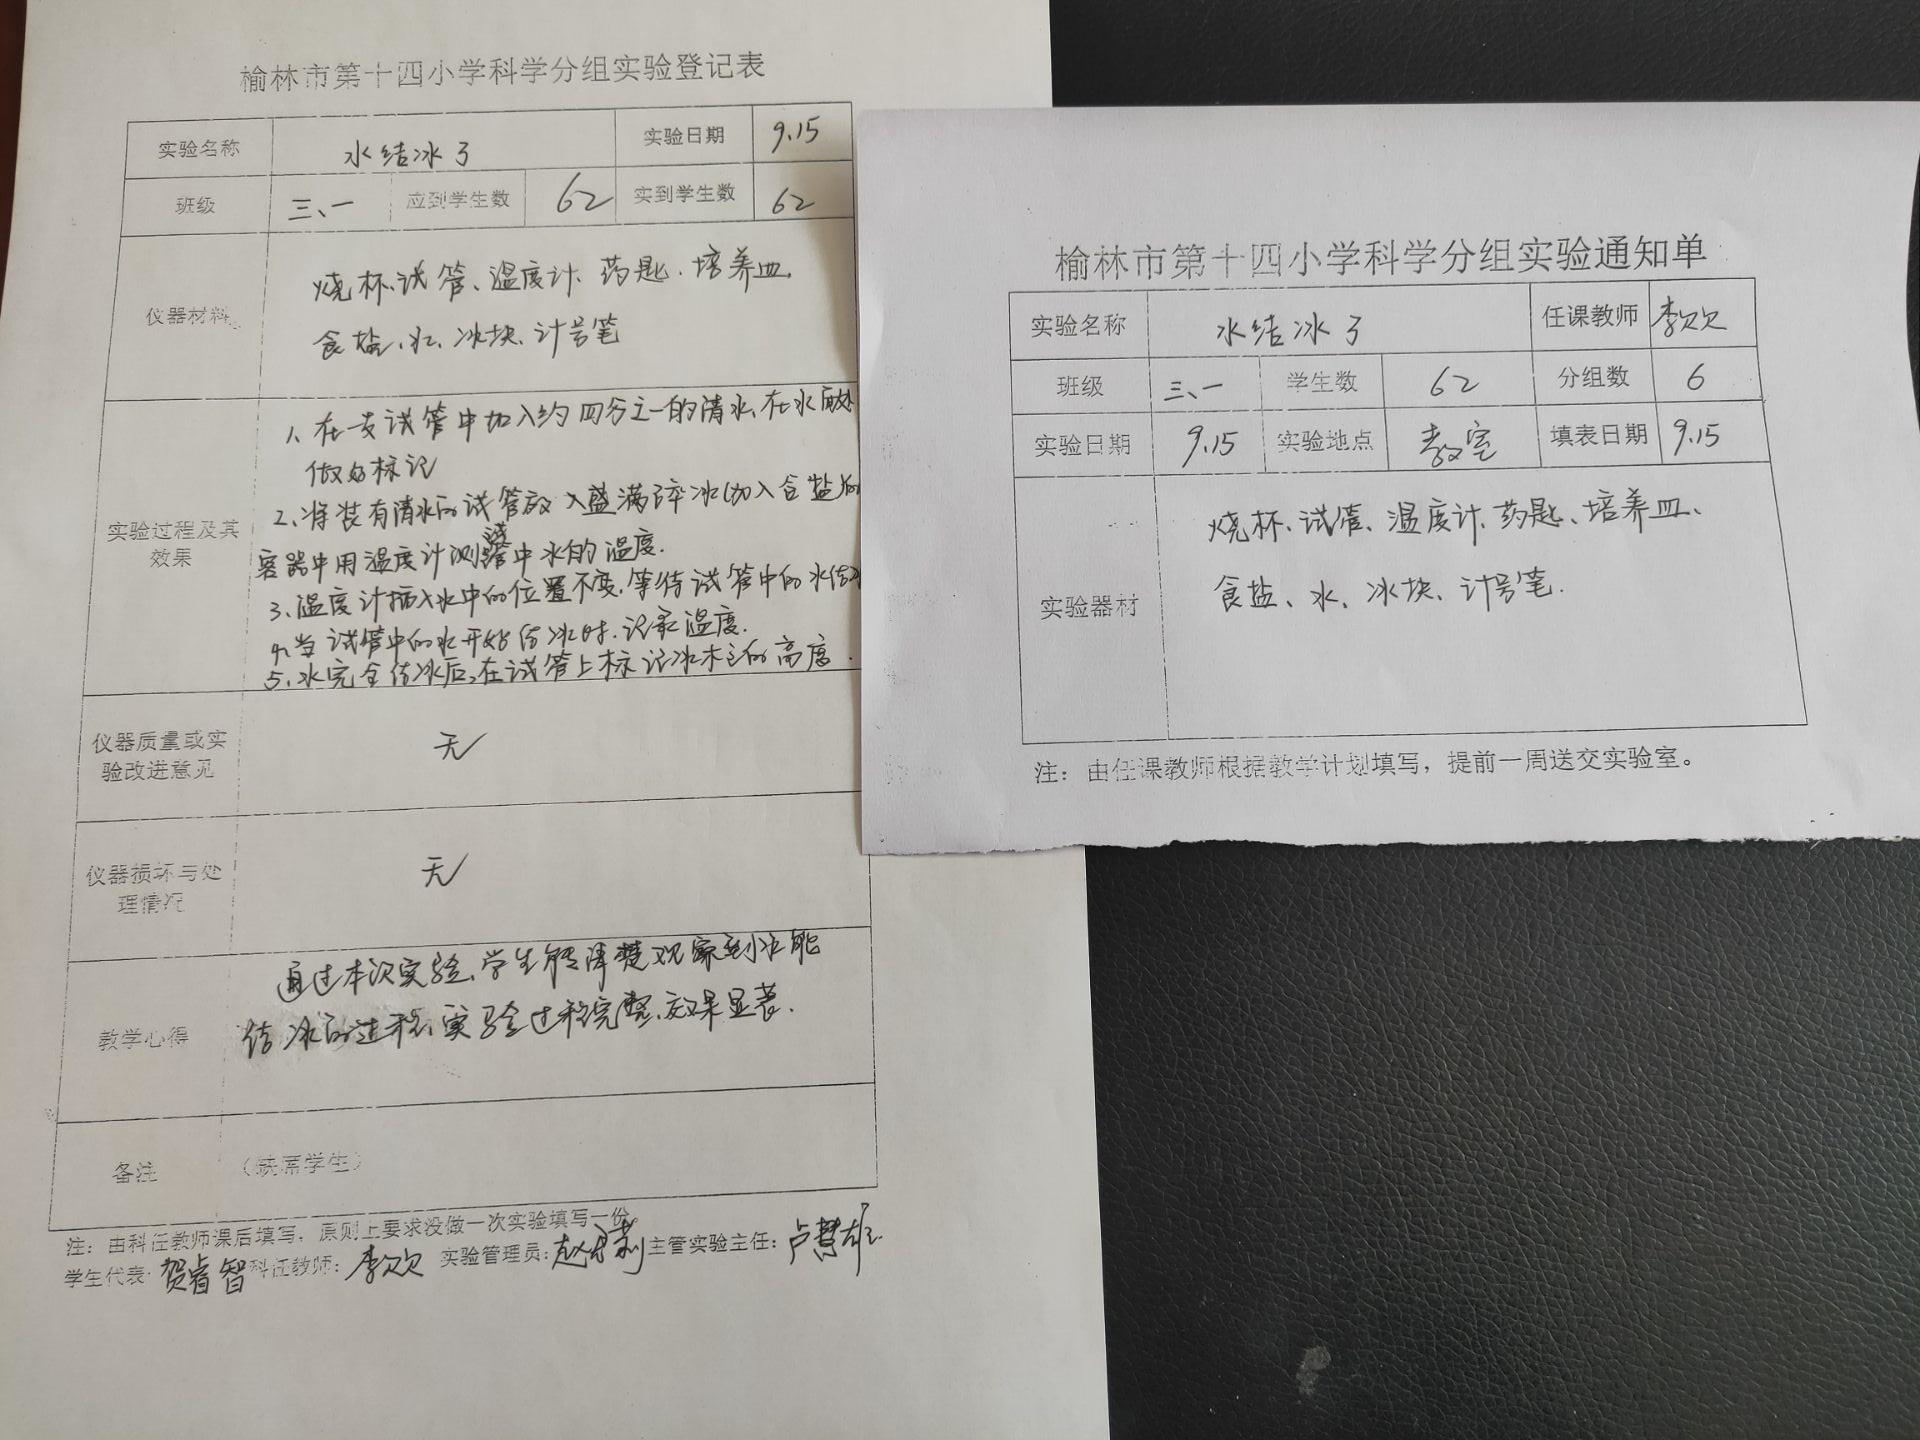 榆林市第十四小学科学分组实验登记表
实验名称 水结冰了 实验日期 9.15
班级 三、一 应到学生数 62 实到学生数 62
仪器材料
烧杯、试管、温度计、药匙、培养皿、
食盐、水、冰块、计号笔
实验过程及其
效果
1、在一支试管中加入约四分之一的清水、在水面处
做好标记
2、将装有清水的试管放入盛满碎冰(加入食盐)的
容器中用温度计测试管中水的温度.
3、温度计插入水中的位置不变.等待试管中的水结冰
4、当试管中的水开始结冰时.记录温度.
5、水完全结冰后,在试管上标记冰柱的高度.
仪器质量或实
验改进意见
无
仪器损坏与处
理情况
无
教学心得
通过本次实验、学生能清楚观察到水能
结冰的过程、实验过程完整、效果显著.
备注 （缺席学生）
注：由科任教师课后填写，原则上要求没做一次实验填写一份
学生代表: 贺睿智 科任教师：李欠欠 实验管理员: 主管实验主任：卢慧雄
榆林市第十四小学科学分组实验通知单
实验名称 水结冰了 任课教师 李欠欠
班级 三、一 学生数 62 分组数 6
实验日期 9.15 实验地点 教室 填表日期 9.15
实验器材
烧杯、试管、温度计、药匙、培养皿、
食盐、水、冰块、计号笔.
注：由任课教师根据教学计划填写，提前一周送交实验室。